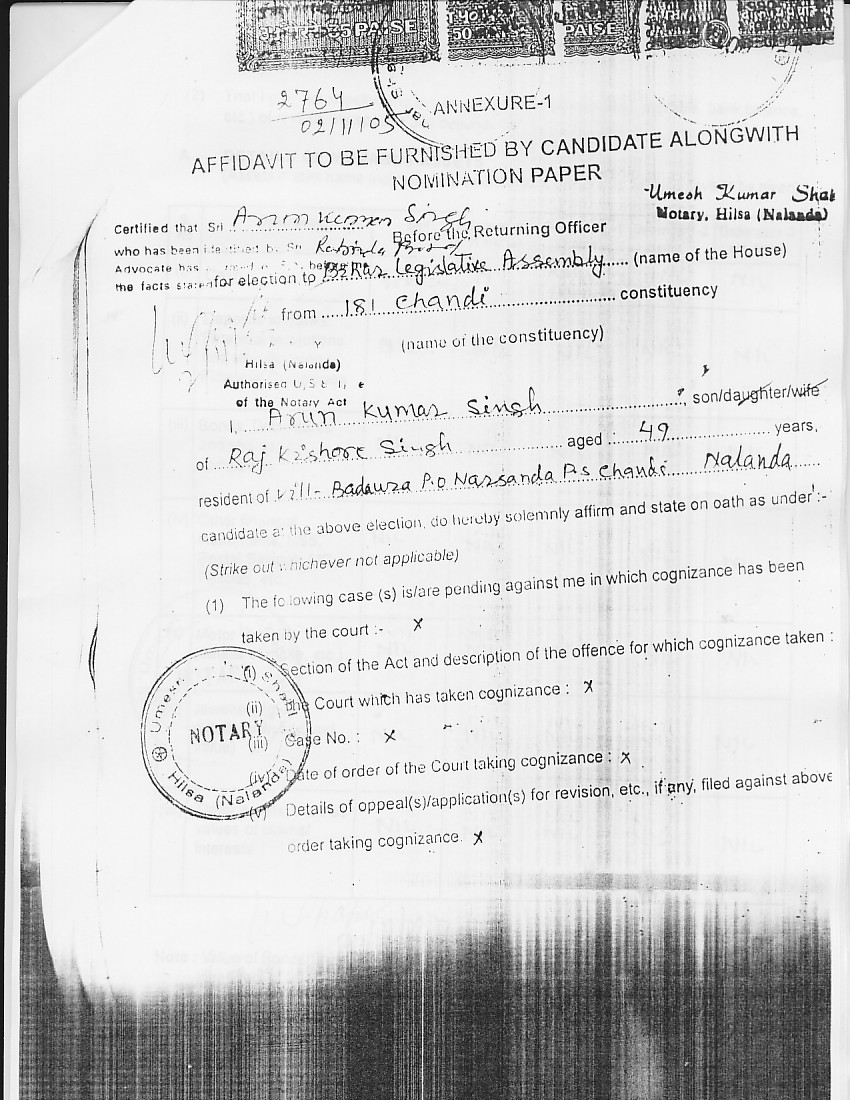 PAISE
50
PAISE
2764
02/11/05
ANNEXURE-1
AFFIDAVIT TO BE FURNISHED BY CANDIDATE ALONGWITH
NOMINATION PAPER
Umesh Kumar Shah
Notary, Hilsa (Nalanda)
Certified that Sri Arun Kumar Singh
Before the Returning Officer
who has been identified by Sri
Advocate has
the facts stated
for election to Bihar Legislative Assembly (name of the House)
from 181 Chandi constituency
(name of the constituency)
Hilsa (Nalanda)
Authorised U/S
of the Notary Act
I, Arun Kumar Singh, son/daughter/wife
of Raj Kishore Singh aged 49 years,
resident of Vill- Badaura P.o Narsanda P.s Chandi Nalanda
candidate at the above election, do hereby solemnly affirm and state on oath as under :-
(Strike out whichever not applicable)
(1) The following case (s) is/are pending against me in which cognizance has been
taken by the court :- X
(i) Section of the Act and description of the offence for which cognizance taken :
(ii) The Court which has taken cognizance : X
(iii) Case No. : X
(iv) Date of order of the Court taking cognizance : X
(v) Details of oppeal(s)/application(s) for revision, etc., if any, filed against above
order taking cognizance. X
NOTARY
Hilsa (Nalanda)